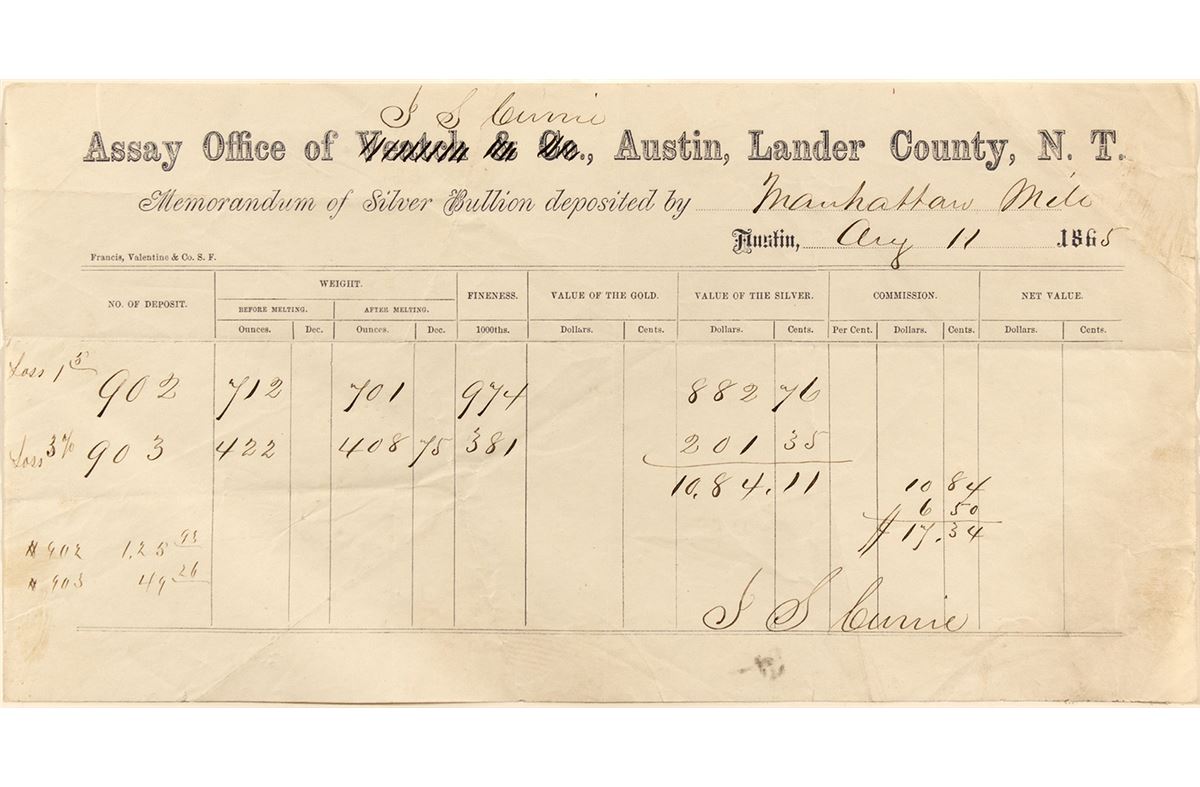 J S Currie
Assay Office of Veatch & Co., Austin, Lander County, N. T.
Memorandum of Silver Bullion deposited by Manhattan Mill
Austin, Aug 11 1865
Francis, Valentine & Co. S. F.
NO. OF DEPOSIT. WEIGHT. FINENESS. VALUE OF THE GOLD. VALUE OF THE SILVER. COMMISSION. NET VALUE.
BEFORE MELTING. AFTER MELTING.
Ounces. Dec. Ounces. Dec. 1000ths. Dollars. Cents. Dollars. Cents. Per Cent. Dollars. Cents. Dollars. Cents.
Loss 1 5
902 712 701 974 882 76
Loss 3 %
903 422 408 75 381 201 35
10.84.11 10 84
6 50
$ 17.34
# 902 1.25 93
# 903 49 26
J S Currie